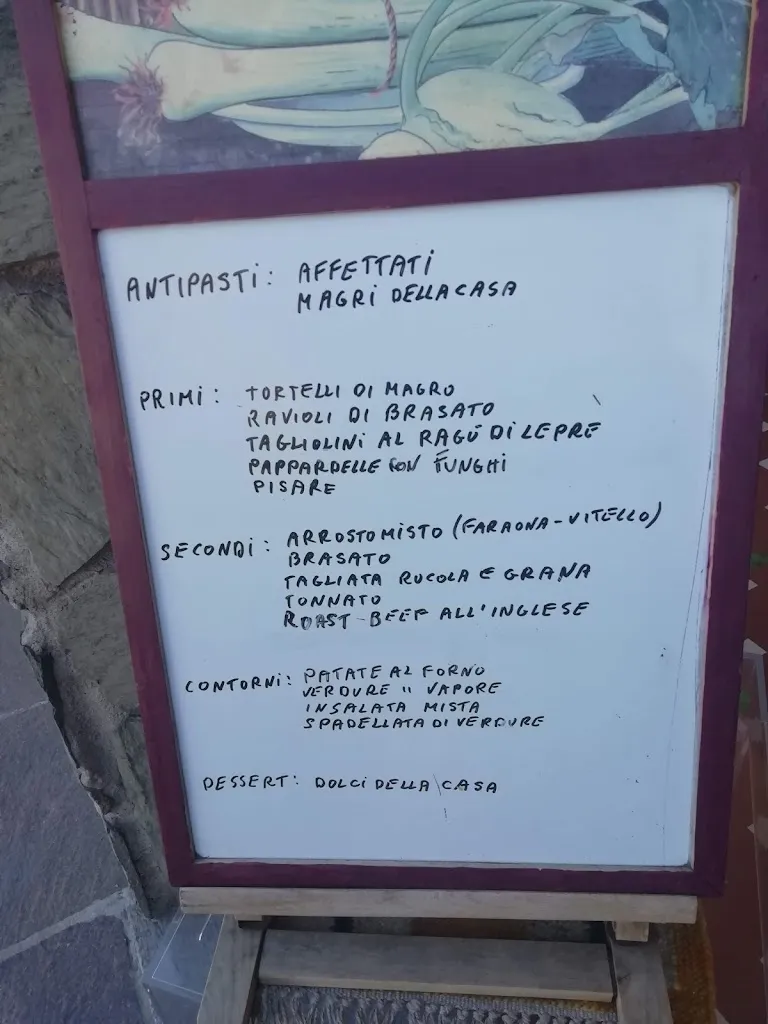 ANTIPASTI: AFFETTATI
MAGRI DELLA CASA
PRIMI: TORTELLI DI MAGRO
RAVIOLI DI BRASATO
TAGLIOLINI AL RAGÚ DI LEPRE
PAPPARDELLE CON FUNGHI
PISARE
SECONDI: ARROSTO MISTO (FARAONA-VITELLO)
BRASATO
TAGLIATA RUCOLA E GRANA
TONNATO
ROAST-BEEF ALL'INGLESE
CONTORNI: PATATE AL FORNO
VERDURE " VAPORE
INSALATA MISTA
SPADELLATA DI VERDURE
DESSERT: DOLCI DELLA CASA